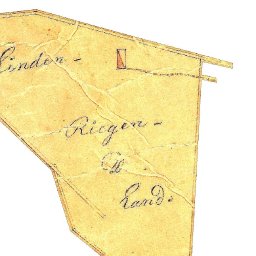 Linden-
Riegen-
Land.